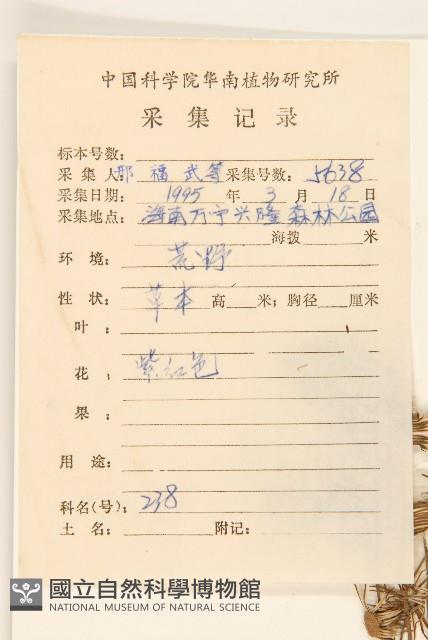 中国科学院华南植物研究所
采集记录
标本号数：
采集人 邢福武等 采集号数：5638
采集日期：1995 年 3 月 18 日
采集地点：海南万宁兴隆森林公园
海拨 米
环境：荒野
性状：草本 高 米；胸径 厘米
叶：
花：紫红色
果：
用途：
科名(号)：238
土名： 附记：
國立自然科學博物館
NATIONAL MUSEUM OF NATURAL SCIENCE